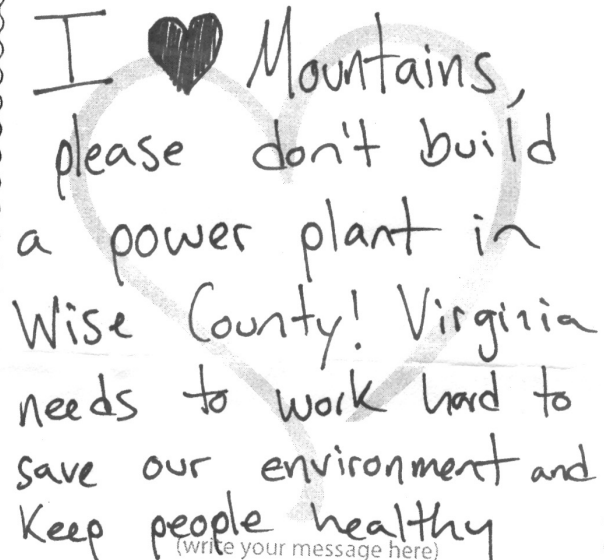 I ♥ Mountains,
please don't build
a power plant in
Wise County! Virginia
needs to work hard to
save our environment and
Keep people healthy
(write your message here)